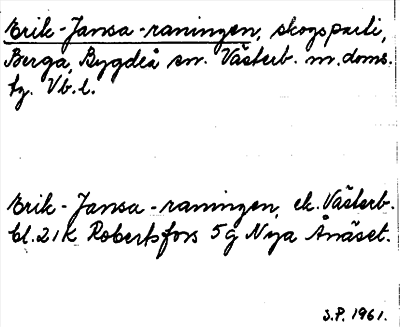 Erik-Jansa-raningen, skogsparti,
Berga, Bygdeå sn. Västerb. m. doms.
tg. Vb. l.
Erik-Jansa-raningen, ek. Västerb.
bl. 21K Robertsfors 5g Nya Ånäset.
S.P. 1961.